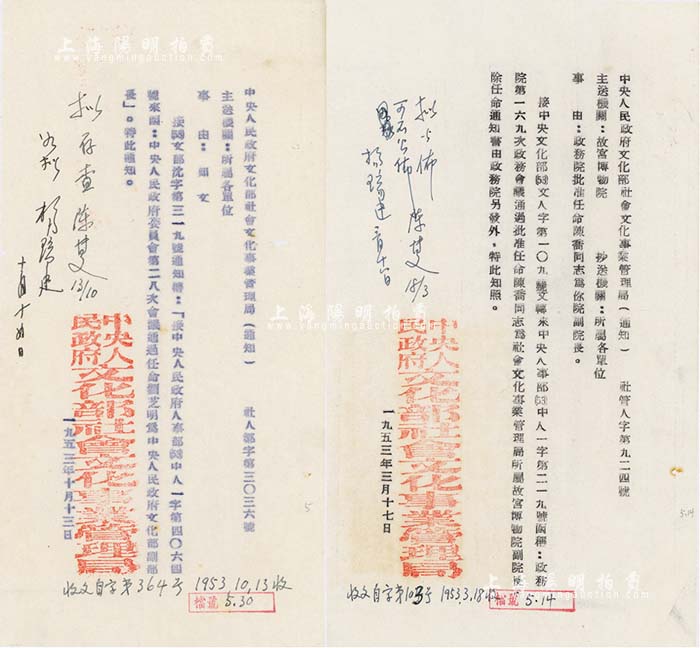 上海陽明拍賣
www.yangmingauction.com
中央人民政府文化部社會文化事業管理局（通知）　社管人字第九二四號
主送機關：故宮博物院　抄送機關：所屬各單位
事　由：政務院批准任命陳喬同志為你院副院長。
接中央文化部(53)文人字第一〇九號文轉來中央人事部(53)中人一字第二一九號函稱：政務
院第一六九次政務會議通過批准任命陳喬同志為社會文化事業管理局所屬故宮博物院副院長
除任命通知書由政務院另發外，特此知照。
擬公佈　陳
18/3
可不公佈
一九五三年三月十七日
中央人民政府文化部社會文化事業管理局
收文自字第103号 1953.3.18收
檔號 5.14
5.14
中央人民政府文化部社會文化事業管理局（通知）　社人都字第三〇三六號
主送機關：所屬各單位
事　由：如文
接(53)文部沈字第三一九號通知開：「接中央人民政府人事部(53)中人一字第四〇六四
號來函：中央人民政府委員會第二八次會議通過任命劉芝明為中央人民政府文化部副部
長」。特此通知。
拟存查 陳
13/10
十月十五日
一九五三年十月十三日
中央人民政府文化部社會文化事業管理局
收文自字第364号 1953.10.13收
檔號 5.30
5
上海陽明拍賣
www.yangmingauction.com